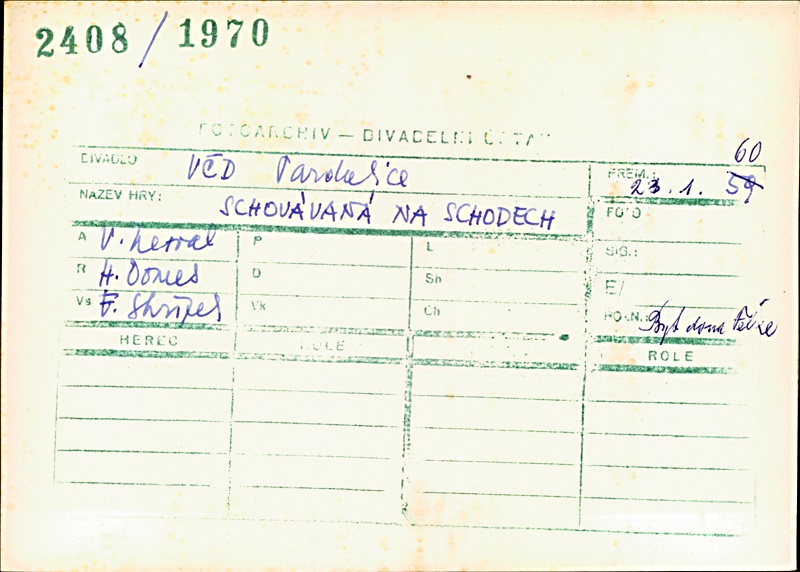 2408 / 1970
FOTOARCHIV — DIVADELNÍ ÚSTAV
DIVADLO VČD Pardubice PREM.: 23. 1. 59 60
NÁZEV HRY: SCHOVÁVANÁ NA SCHODECH FOTO:
A V. Nezval P L SIG.:
R H. Domes D Sh E/
Vs F. Skřípek Vk Ch POZN.: Byt dona Pedra
HEREC ROLE ROLE